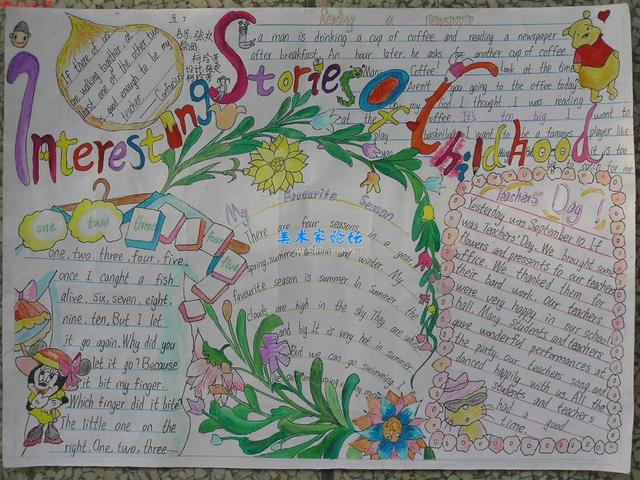 Interesting Stories Of Childhood
If there are
walking together, at
least one of the other two
is good enough to be my
teacher
Confucius
Reading a newspaper
a man is drinking a cup of coffee and reading a newspaper
after breakfast. An hour later, he asks for another cup of coffee.
Coffee! Look at the time
Aren't you going to the office today
my God I thought I was reading
at the It's too big I want to
play basketball. I want to be a famous player like
it is too
big to for me
one two three four five
one, two, three, four, five.
once I canght a fish
alive. six, seven, eight,
nine, ten, But I let
it go again. Why did you
let it go? Because
it bit my finger.
Which finger did it bite?
The little one on the
right. One, two, three
My Favourite Season
There are four seasons in a year,
spring, summer, autumn and winter. My
favourite season is summer. In summer the
clouds are high in the sky. They are white
and big. It is very hot in summer.
But we can go swimming. I
美术家论坛
Teacher's Day!
Yesterday was September 10. It
was Teachers' Day. We brought some
flowers and pressents to our teachers
office. We thanked them for
their hard work. Our teachers
were very happy in our school
hall. Many students and teachers
gave wonderful performances at
the party. our teachers sang and
danced happily with us. All the
students and teachers
had a good
time.